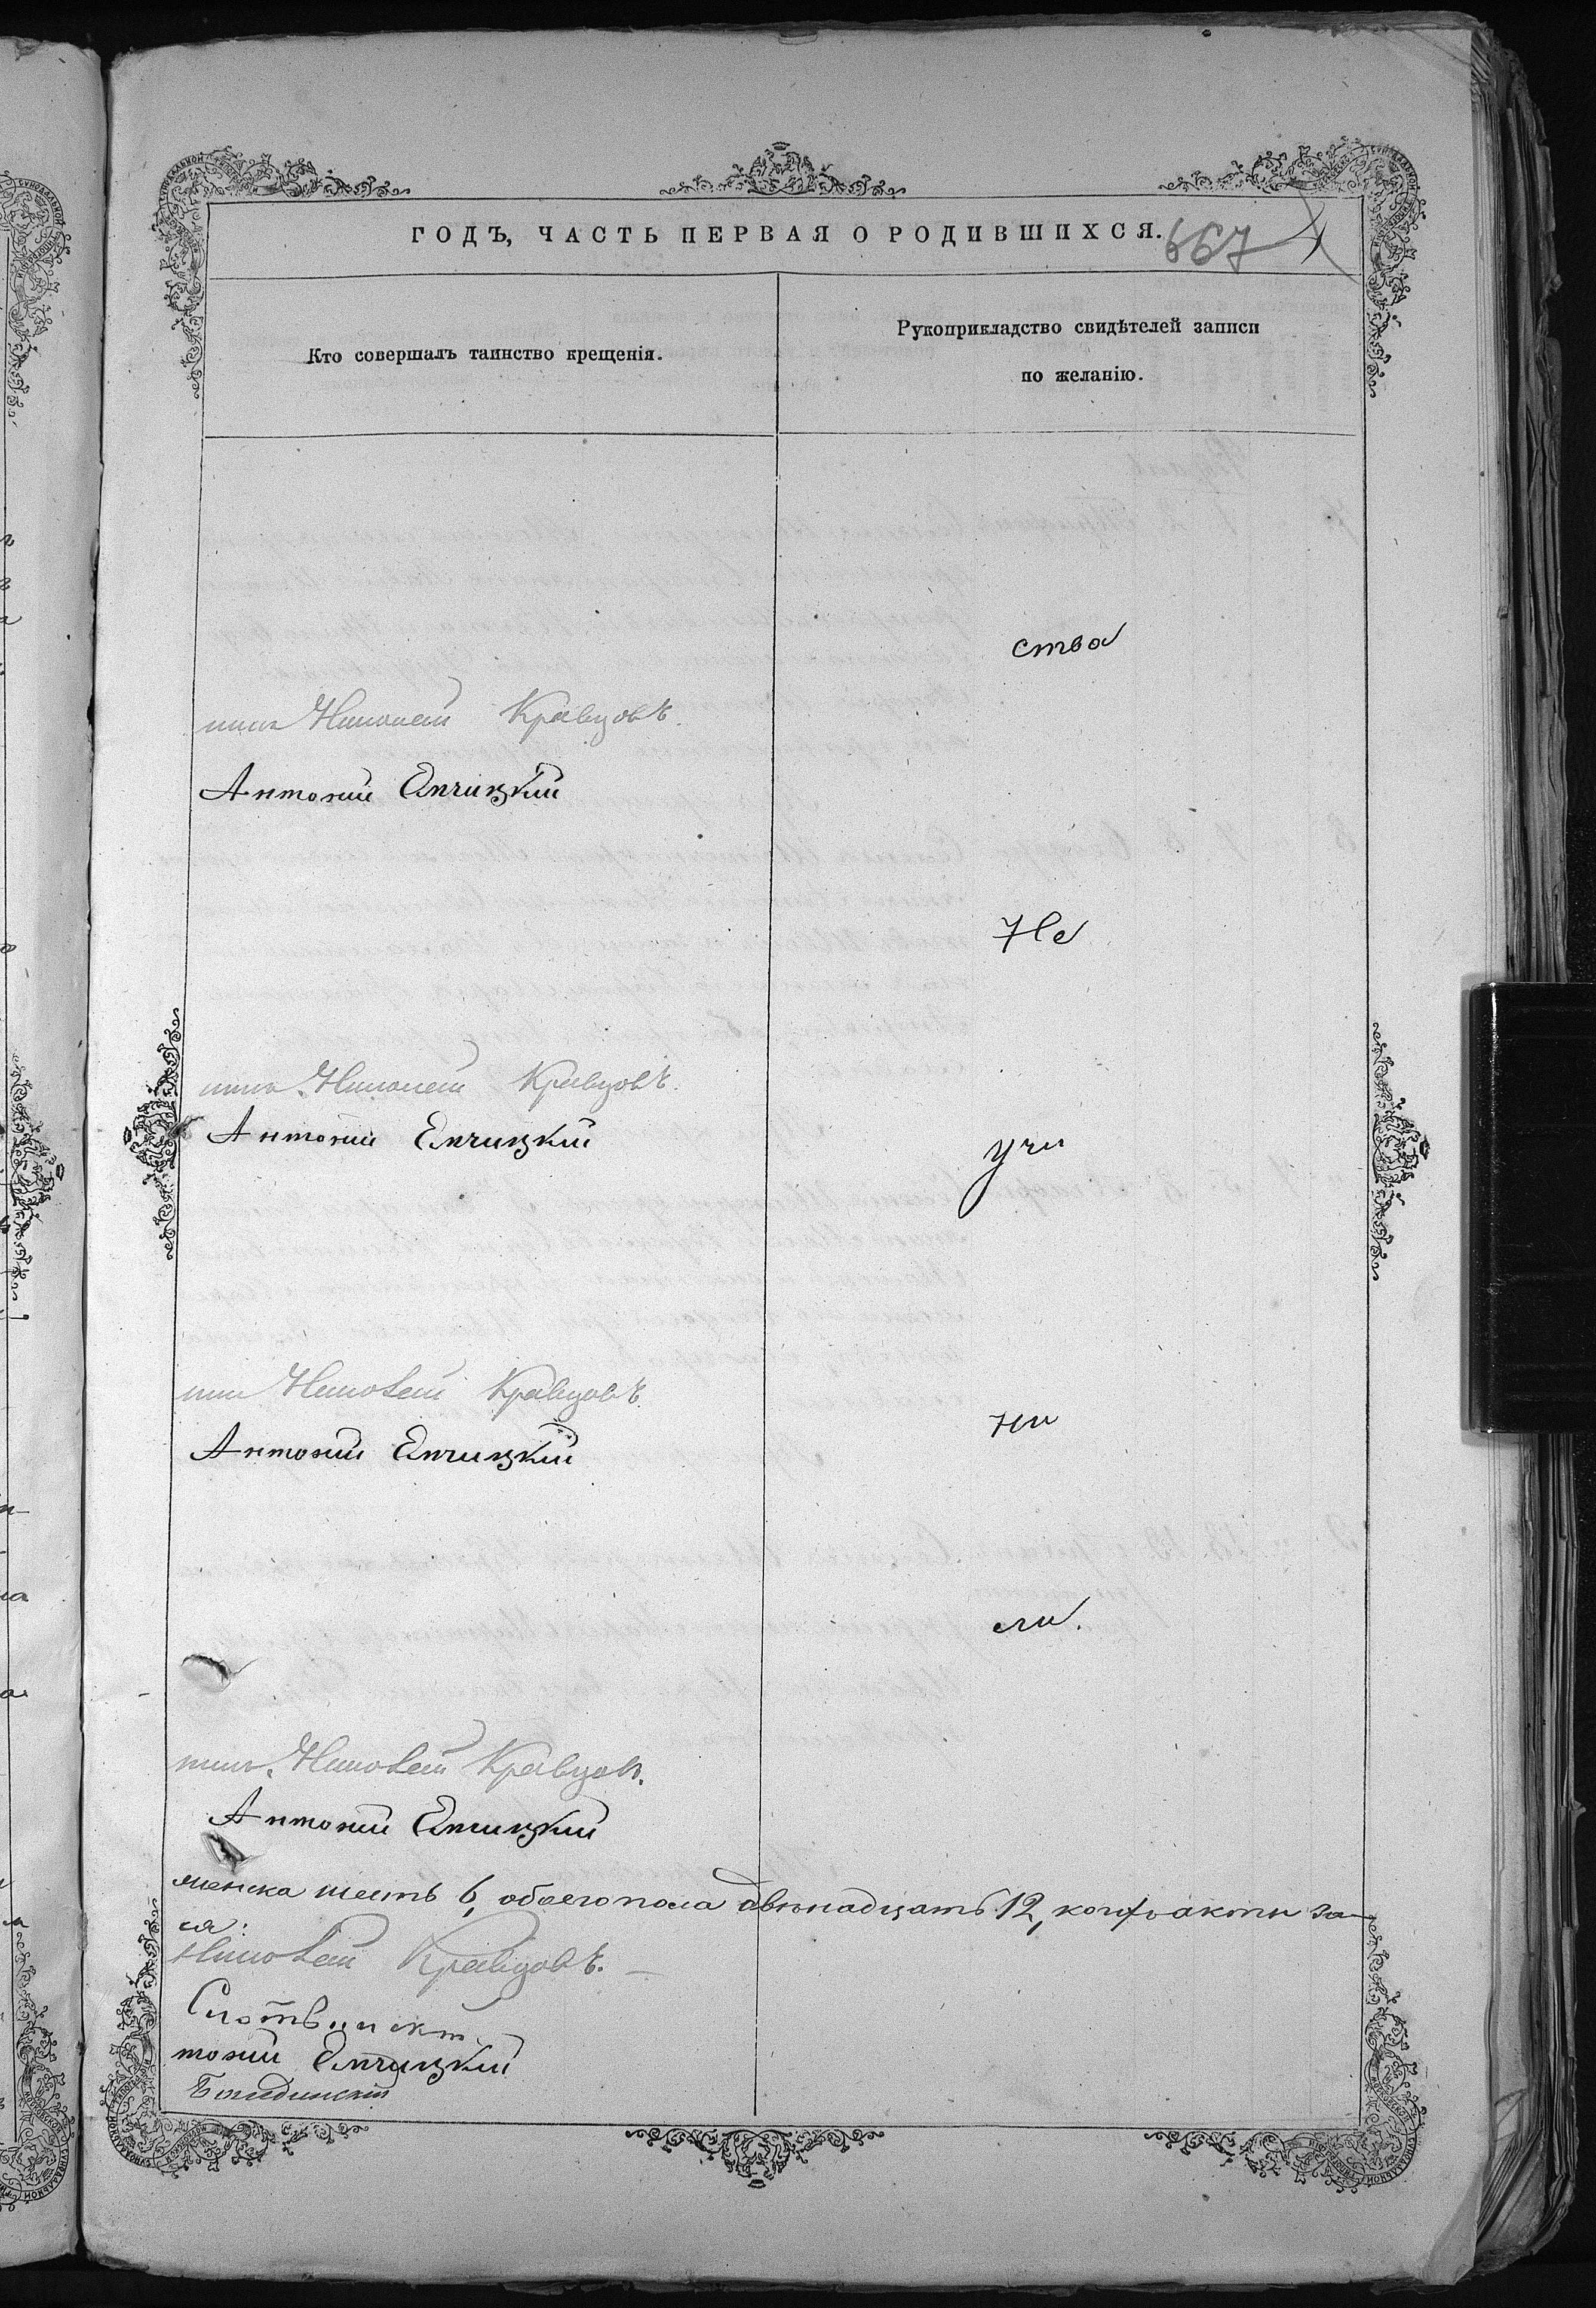 ГОДЪ, ЧАСТЬ ПЕРВАЯ О РОДИВШИХСЯ.
667
Кто совершалъ таинство крещенія.
Рукоприкладство свидѣтелей записи
по желанію.
ства
Николай Кравцовъ.
Антоній Емчицкій
Не
Николай Кравцовъ.
Антоній Емчицкій
учи
Николай Кравцовъ
Антоній Емчицкій
ни
ли.
Николай Кравцовъ.
Антоній Емчицкій
женска шесть 6, обоего пола двѣнадцать 12, за
ся:
Николай Кравцовъ.
тоній Емчицкій